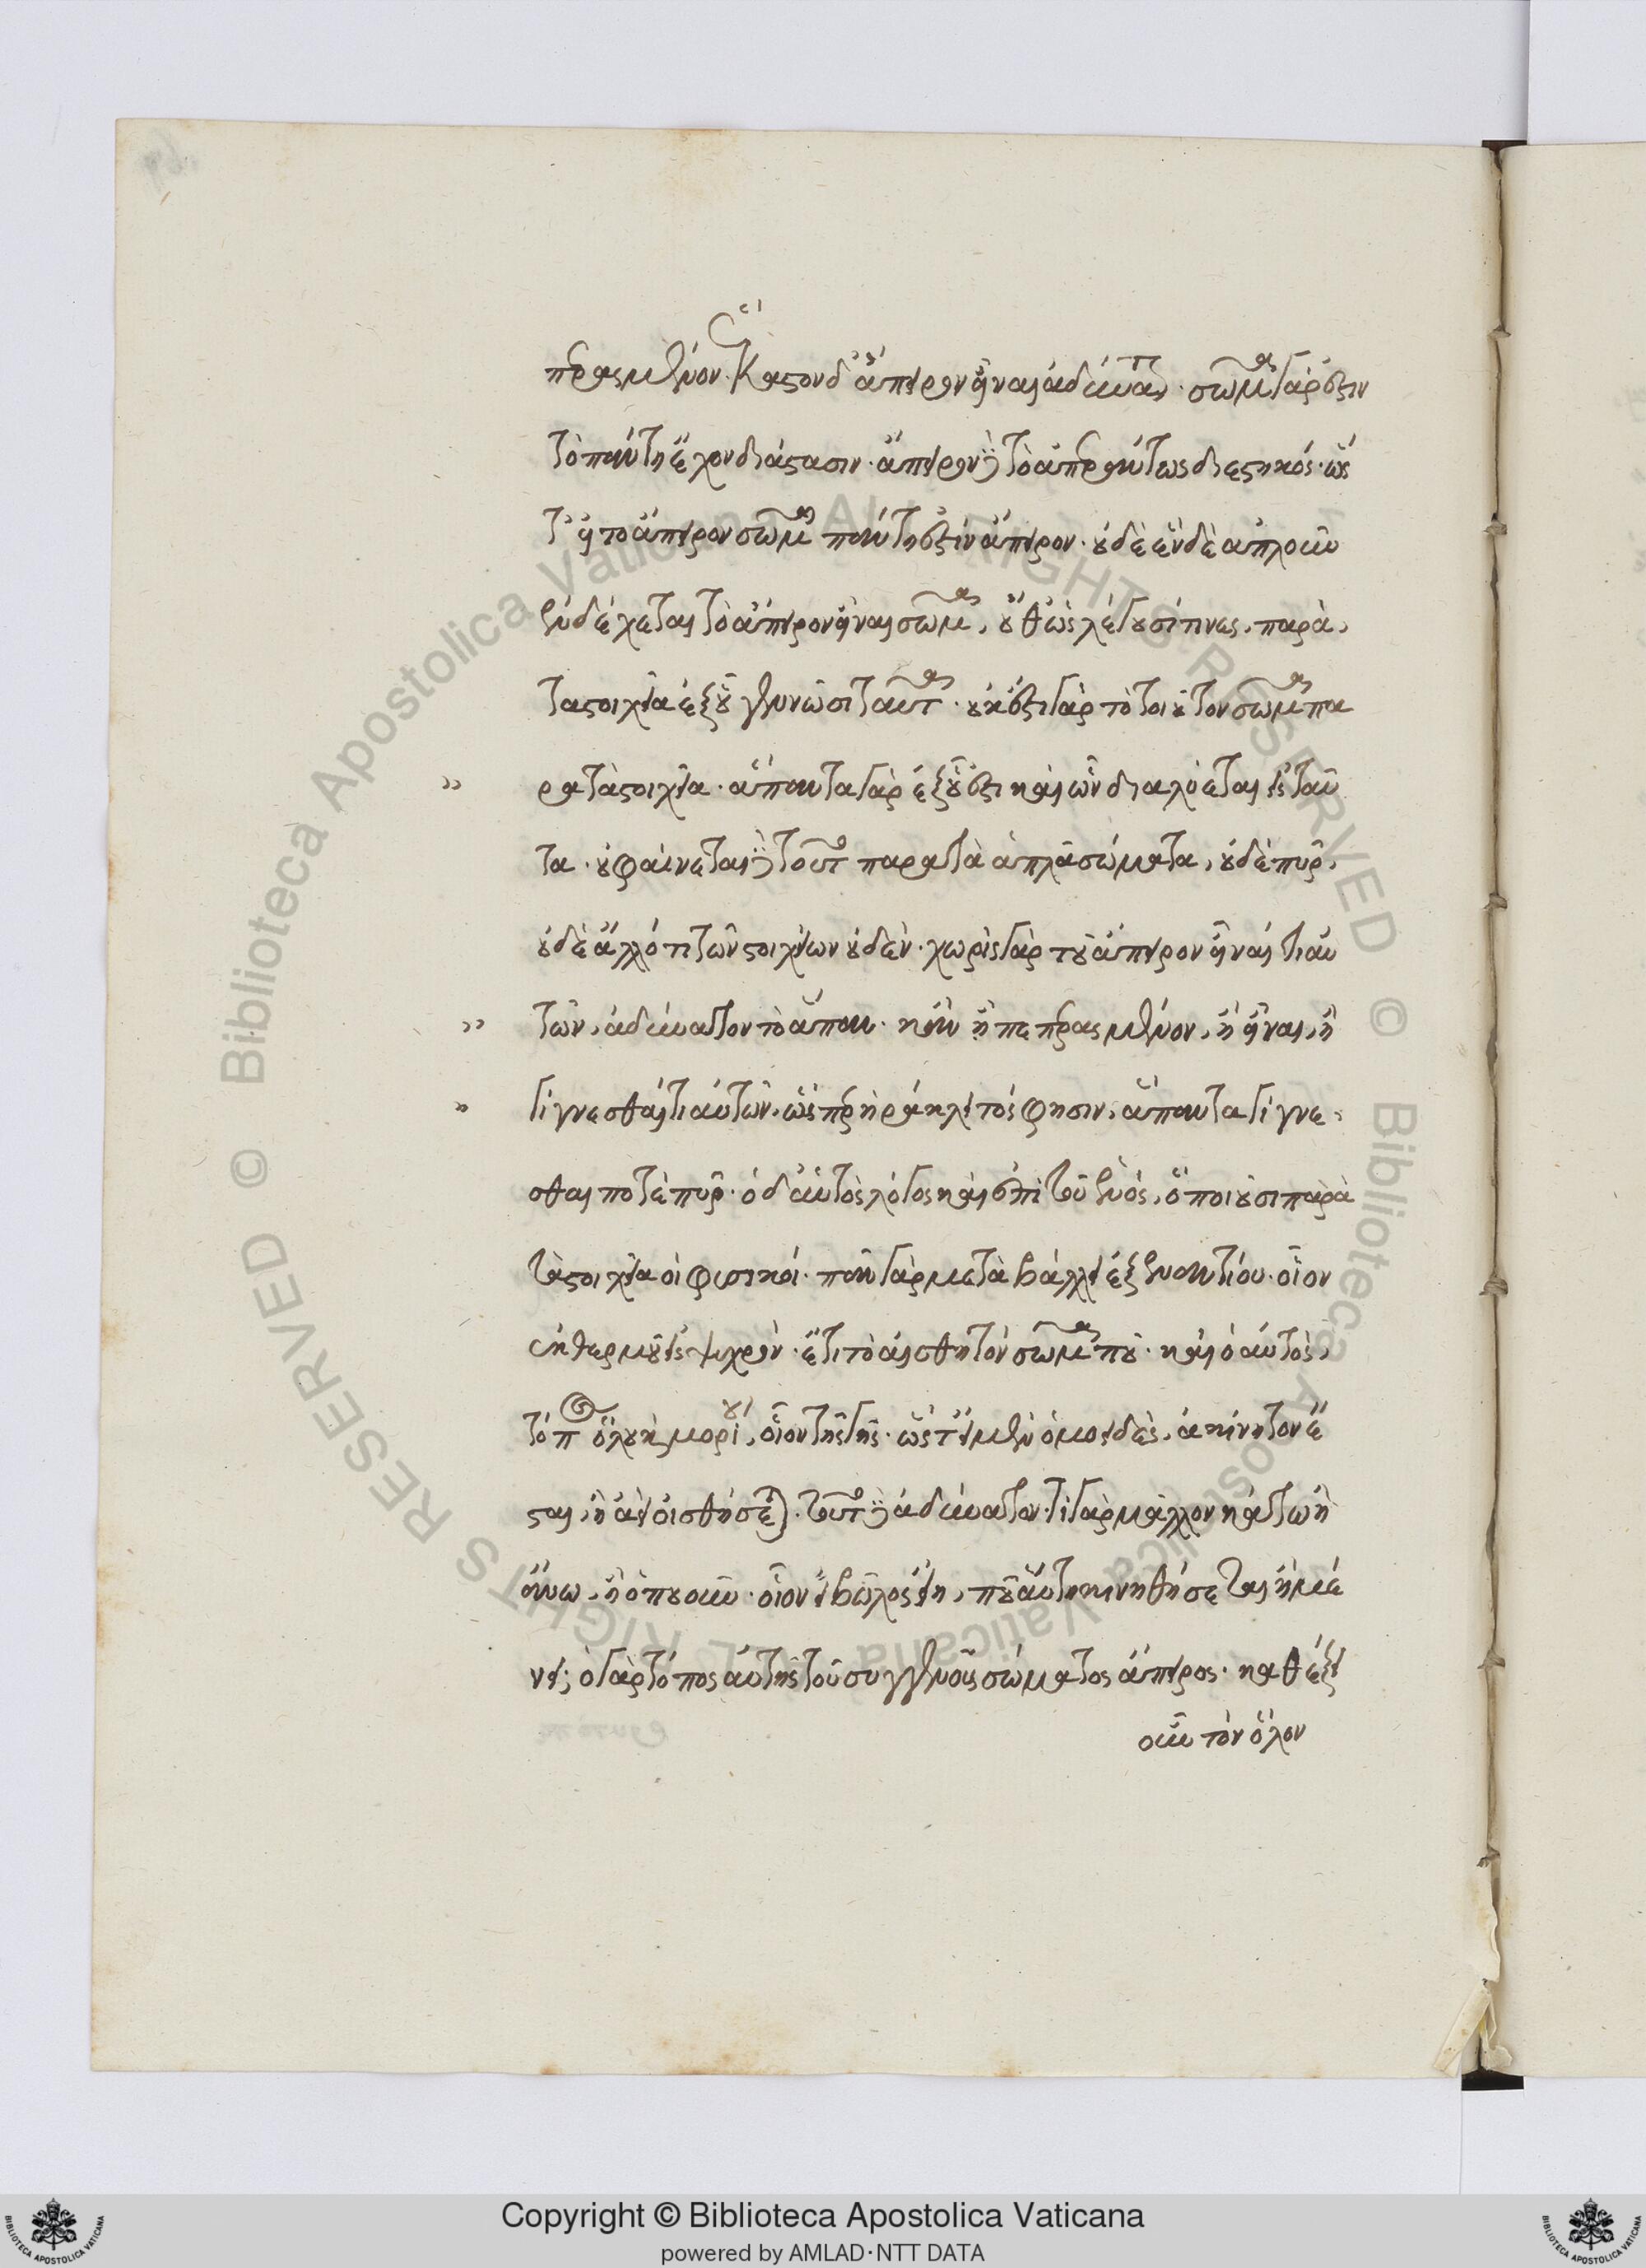 περασμένον. ἕκαστον δ' ἄπειρον εἶναι ἀδύνατον. σῶμα γάρ ἐστιν
τὸ πάντη ἔχον διάστασιν. ἄπειρον δὲ τὸ ἀπεράντως διεστηκός. ὥς
τ' εἰ τὸ ἄπειρον σῶμα πάντη ἐστὶν ἄπειρον. οὐδὲ ἓν δὲ ἁπλοῦν
ἐνδέχεται τὸ ἄπειρον εἶναι σῶμα, οὔθ' ὡς λέγουσί τινες, παρὰ,
τὰ στοιχεῖα ἐξ οὗ γεννῶσι ταῦτα. οὐκ ἔστι γὰρ τὸ τοιοῦτον σῶμα πα
ρὰ τὰ στοιχεῖα. ἅπαντα γὰρ ἐξ οὗ ἐστι καὶ ὧν διαλύεται εἰς ταῦ
τα. οὐ φαίνεται δὲ τοῦτο παρὰ τὰ ἁπλᾶ σώματα, οὐδὲ πῦρ,
οὐδὲ ἄλλό τι τῶν στοιχείων οὐδέν. χωρὶς γὰρ τοῦ ἄπειρον εἶναί τι αὐ
τῶν, ἀδύνατον τὸ ἅπαν. κἂν ᾖ πεπερασμένον, ἢ εἶναι, ἢ
γίγνεσθαί τι αὐτῶν, ὥσπερ ἡράκλειτός φησιν, ἅπαντα γίγνε
σθαι ποτὲ πῦρ. ὁ δ' αὐτὸς λόγος καὶ ἐπὶ τοῦ ἑνός, ὃ ποιοῦσι παρὰ
τὰ στοιχεῖα οἱ φυσικοί. πᾶν γὰρ μεταβάλλει ἐξ ἐναντίου. οἷον
ἐκ θερμοῦ εἰς ψυχρόν. ἔτι τὸ αἰσθητὸν σῶμα ποῦ. καὶ ὁ αὐτὸς,
τόπος ὅλου καὶ μορίου, οἷον τῆς γῆς. ὥστ' εἰ μὲν ὁμοειδὲς, ἀκίνητον ἔ
σται, ἢ ἀεὶ οἰσθήσεται. τοῦτο δὲ ἀδύνατον. τί γὰρ μᾶλλον κάτω ἢ
ἄνω, ἢ ὁπουοῦν. οἷον εἰ βῶλος εἴη, ποῦ αὕτη κινηθήσεται ἢ μέ
νει; ὁ γὰρ τόπος αὐτῆς τοῦ συγγενοῦς σώματος ἄπειρος. καθέξει
οὖν τὸν ὅλον
Copyright © Biblioteca Apostolica Vaticana
powered by AMLAD·NTT DATA